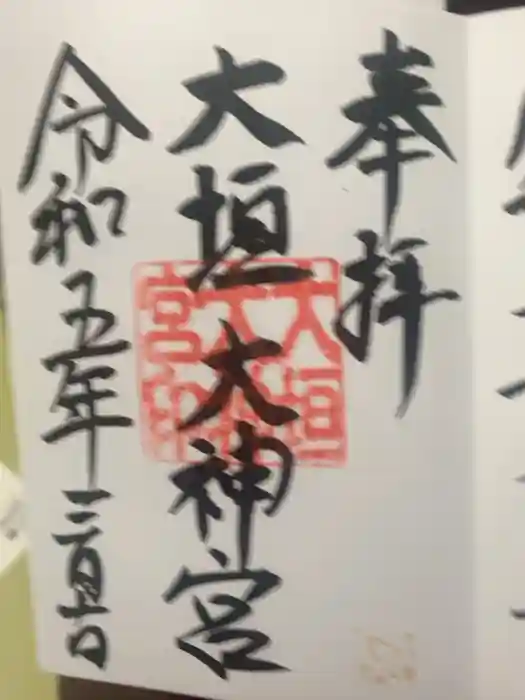 奉拝
大垣大神宮
令和五年
大垣
大神
宮印